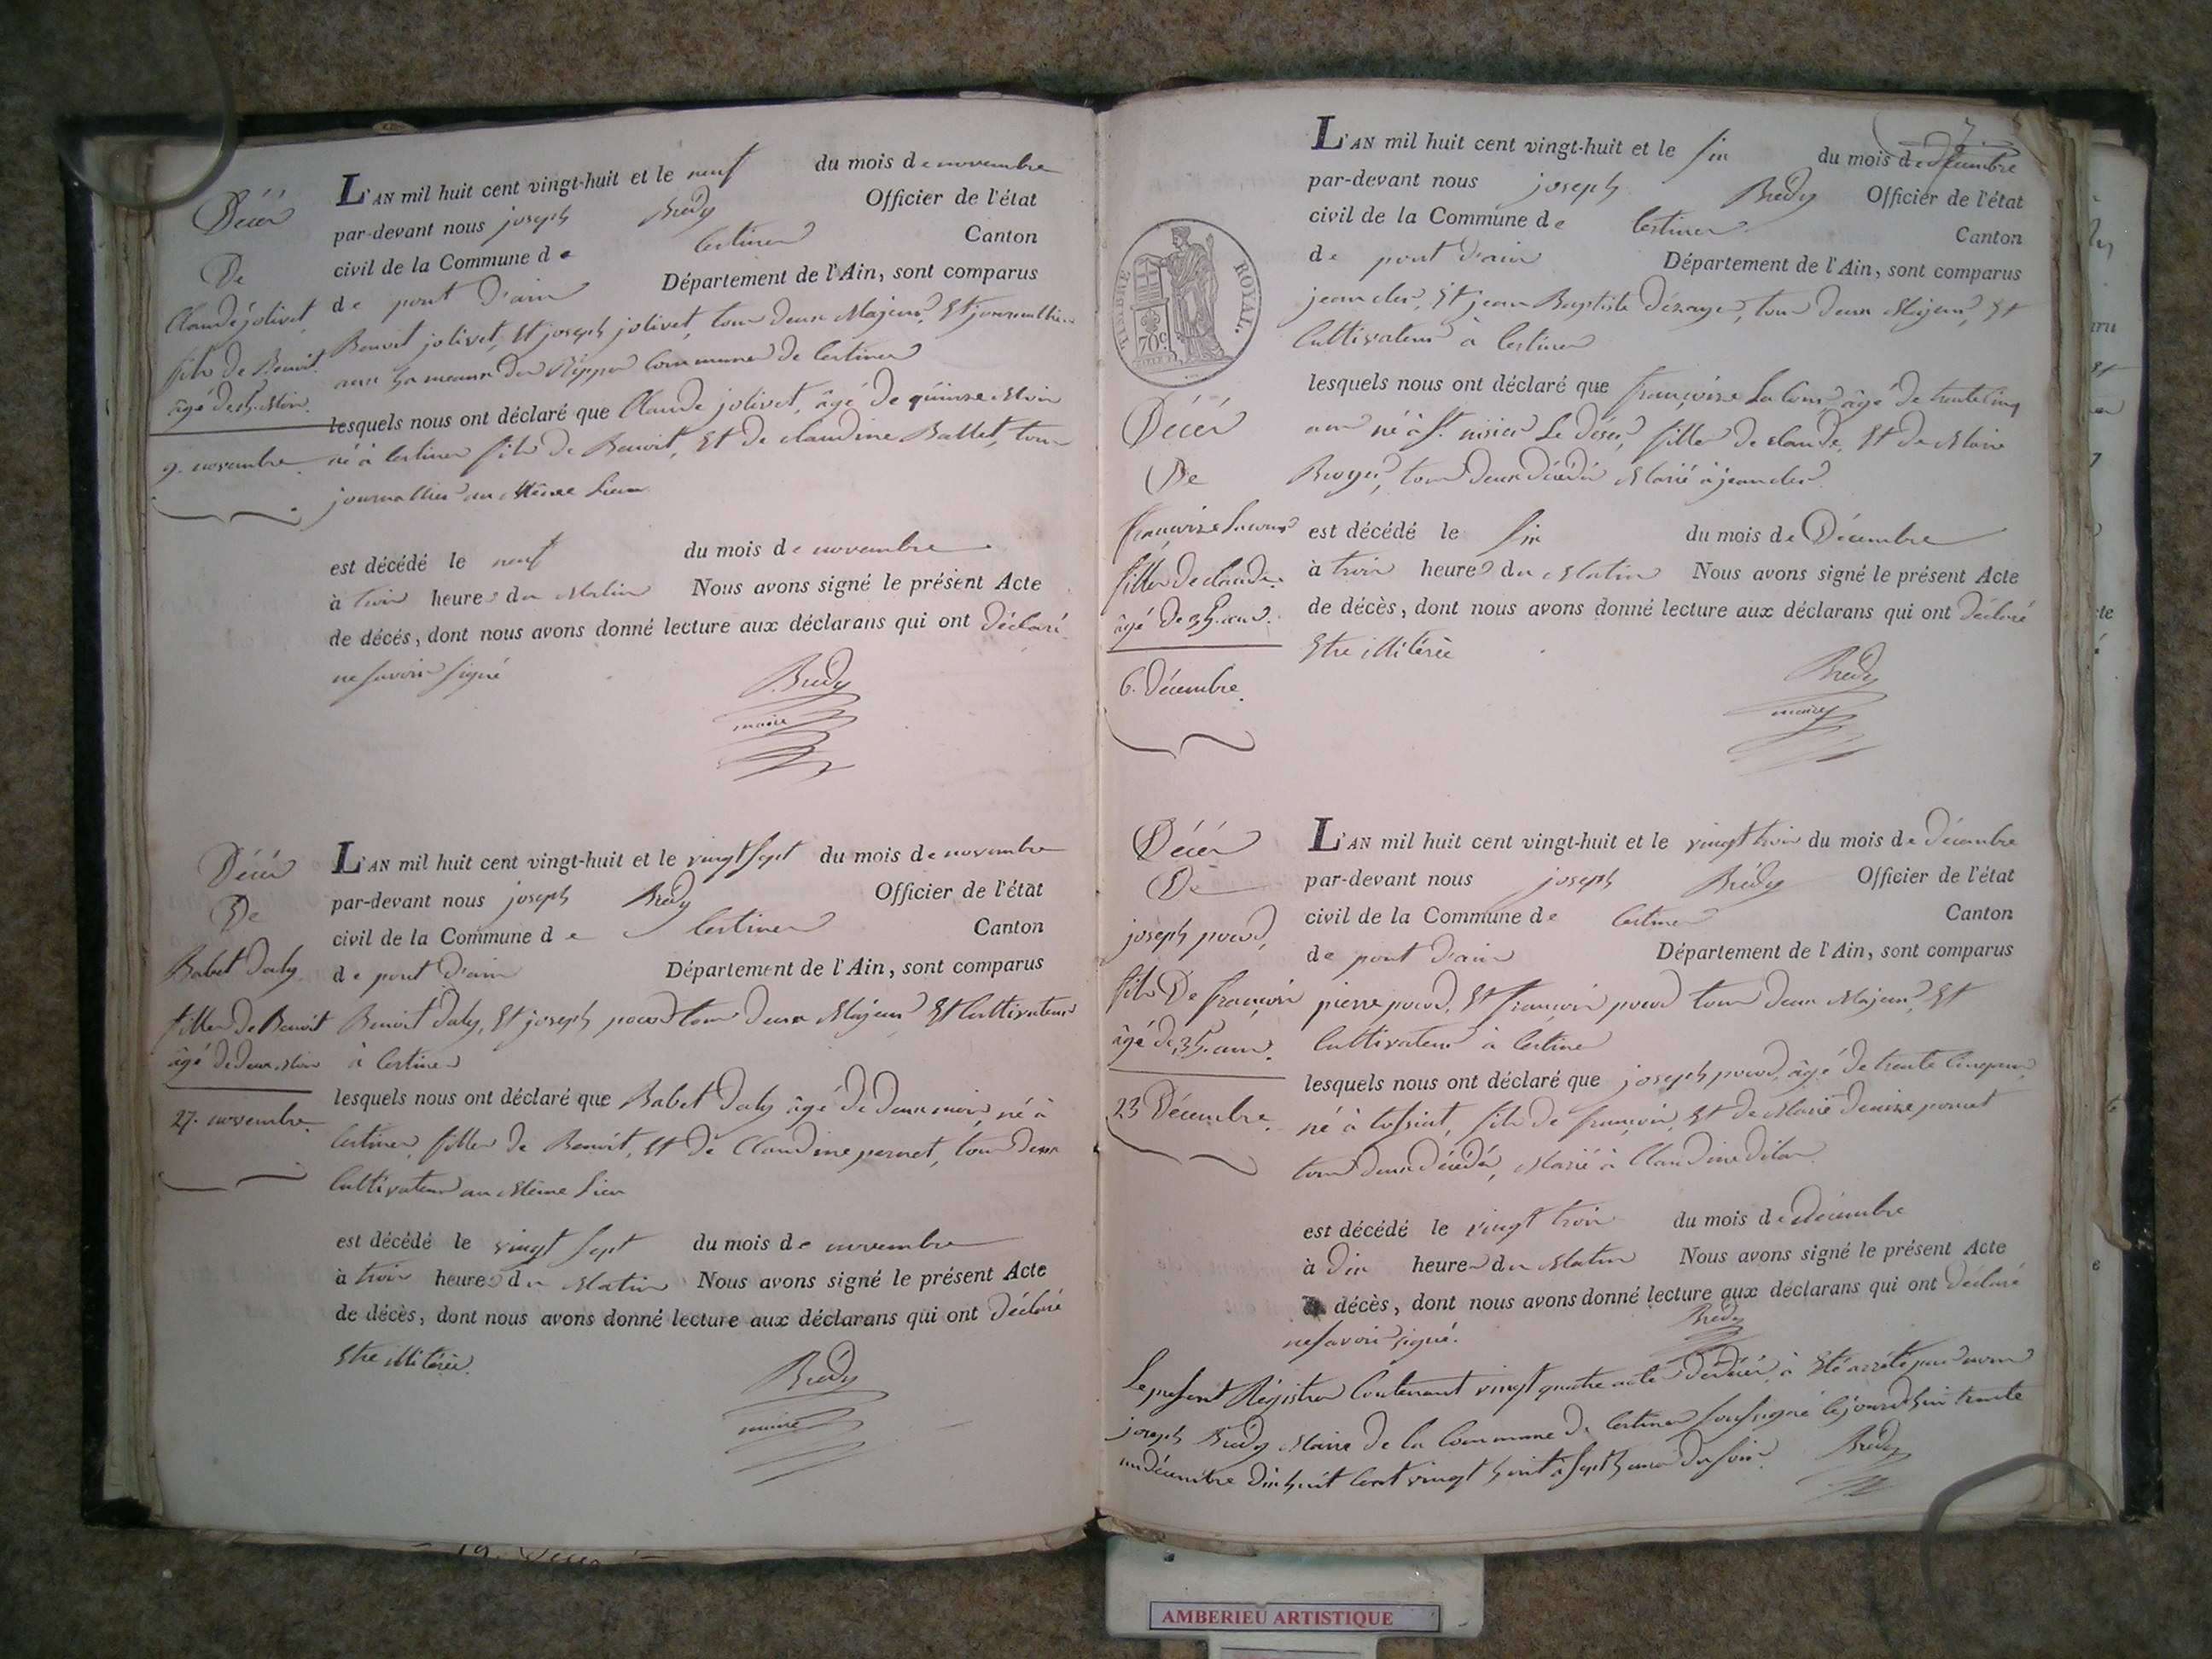 Décès
De
Claude jolivet,
fils de Benoit
âgé de 15. Mois.
9. novembre
L'AN mil huit cent vingt-huit et le neuf du mois de novembre
par-devant nous joseph Bredy Officier de l'état
civil de la Commune de Certines Canton
de pont d'ain Département de l'Ain, sont comparus
Benoit jolivet, Et joseph jolivet, tous deux Majeurs, Et journalliers
aux hameaux des Rippes Commune de Certines
lesquels nous ont déclaré que Claude jolivet, âgé de quinze Mois
né à Certines fils de Benoit, Et de claudine Ballet, tous
journalliers au Même Lieu
est décédé le neuf du mois de novembre
à trois heures du Matin Nous avons signé le présent Acte
de décés, dont nous avons donné lecture aux déclarans qui ont déclaré
ne savoir signé
Bredy
maire
Décès
De
Babet Daly
fille de Benoit
âgé de deux Mois
27. novembre
L'AN mil huit cent vingt-huit et le vingt sept du mois de novembre
par-devant nous joseph Bredy Officier de l'état
civil de la Commune de Certines Canton
de pont d'ain Département de l'Ain, sont comparus
Benoit Daly, Et joseph tous deux Majeurs Et Cultivateurs
à Certines
lesquels nous ont déclaré que Babet Daly âgé de deux mois, né à
Certines, fille de Benoit, Et de Claudine pernet, tous deux
Cultivateurs au Même Lieu
est décédé le vingt sept du mois de novembre
à trois heures du Matin Nous avons signé le présent Acte
de décès, dont nous avons donné lecture aux déclarans qui ont Déclaré
Etre illitérés.
Bredy
maire
7
TIMBRE ROYAL.
70c.
Décès
De
françoise
fille de claude.
âgé de 35. ans.
6. Décembre.
L'AN mil huit cent vingt-huit et le six du mois de décembre
par-devant nous joseph Bredy Officier de l'état
civil de la Commune de Certines Canton
de pont d'ain Département de l'Ain, sont comparus
jean Et jean Baptiste tous deux Majeurs, Et
Cultivateurs à Certines
lesquels nous ont déclaré que françoise âgé de trente cinq
ans né à St. nisier Le Désert, fille de claude, Et de Marie
tous deux décédés Marié à jean
est décédé le six du mois de Décembre
à trois heures du Matin Nous avons signé le présent Acte
de décès, dont nous avons donné lecture aux déclarans qui ont Déclaré
Etre illitérés
Bredy
maire
Décès
De
joseph
fils De françois
âgé de 35. ans.
23 Décembre.
L'AN mil huit cent vingt-huit et le vingt trois du mois de décembre
par-devant nous joseph Bredy Officier de l'état
civil de la Commune de Certines Canton
de pont d'ain Département de l'Ain, sont comparus
pierre Et françois tous deux Majeurs, Et
Cultivateurs à Certines
lesquels nous ont déclaré que joseph âgé de trente Cinq ans
né à tossiat, fils de françois, Et de Marie Denise
tous deux décédés, Marié à Claudine
est décédé le vingt trois du mois de décembre
à Dix heures du Matin Nous avons signé le présent Acte
de décès, dont nous avons donné lecture aux déclarans qui ont déclaré
ne savoir signé.
Bredy
Le present Régistre Contenant vingt quatre acte de décès, à Eté arrété par nous
joseph Bredy Maire de la Commune de Certines soussigné cejourd'hui trente
un décembre dix huit Cent vingt huit à sept heures du soir.
Bredy
AMBERIEU ARTISTIQUE